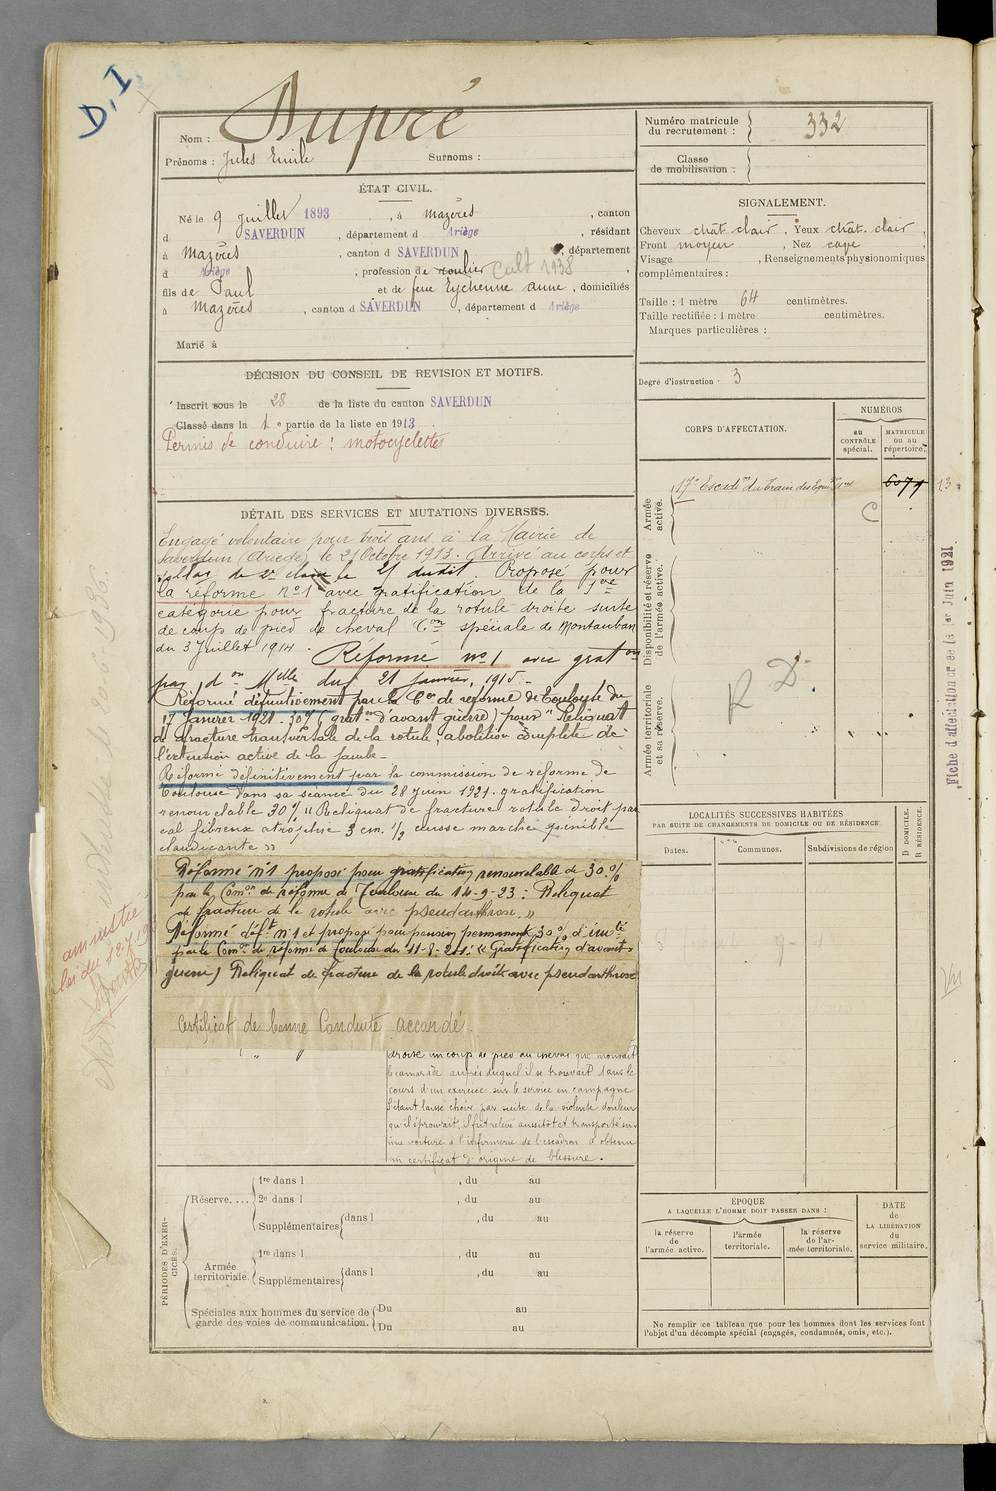 D.I
Nom : Dupré
Prénoms : Jules Emile Surnoms :
ÉTAT CIVIL.
Né le 9 juillet 1893, à Mazères, canton
d SAVERDUN, département d Ariège, résidant
à Mazères, canton d SAVERDUN, département
d Ariège, profession de roulier Cult 1938
fils de Paul et de feue Eychenne Anne, domiciliés
à Mazères, canton d SAVERDUN, département d Ariège
Marié à
DÉCISION DU CONSEIL DE REVISION ET MOTIFS.
Inscrit sous le 28 de la liste du canton SAVERDUN
Classé dans la 1e partie de la liste en 1913
Permis de conduire : motocyclettes
DÉTAIL DES SERVICES ET MUTATIONS DIVERSES.
Engagé volontaire pour trois ans à la Mairie de
Saverdun (Ariège) le 21 Octobre 1913. Arrivé au corps et
de 2e classe le 25 dudit. Proposé pour
la réforme n°1 avec gratification de la 1re
catégorie pour fracture de la rotule droite suite
de coup de pied de cheval Con spéciale de Montauban
du 3 Juillet 1914.
Réformé n°1 avec graton
par don Melle du 21 janvier 1915.
Réformé définitivement par la Con de réforme de Toulouse du
17 Janvier 1921. 30% (graton d'avant guerre) pour "Reliquat
de fracture transversale de la rotule, abolition complète de
l'extension active de la jambe.
Réformé définitivement par la commission de réforme de
Toulouse dans sa séance du 28 juin 1921. gratification
renouvelable 30% "Reliquat de fracture rotule droit par
cal fibreux atrophie 3 cm. 1/2 cuisse marche pénible
claudicante"
Réformé n°1 proposé pour gratification renouvelable de 30%
par la Comon de réforme de Toulouse du 14-9-23 : Reliquat
de fracture de la rotule avec pseudarthrose."
Réformé déft n°1 et proposé pour pension permanente 30% d'inté
par la Comon de réforme de Toulouse du 11-8-25: "(Gratification d'avant-
guerre) Reliquat de fracture de la rotule droite avec pseudarthrose
Certificat de bonne Conduite accordé.
droite un coup de pied du cheval que montait
le camarade auprès duquel il se trouvait dans le
cours d'un exercice sur le service en campagne
S'étant laissé choir par suite de la violente douleur
qu'il éprouvait, il fut relevé aussitôt et transporté sur
une voiture à l'infirmerie de l'escadron a obtenu
un certificat d'origine de blessure.
PÉRIODES D'EXERCICES.
Réserve....
1re dans l , du au
2e dans l , du au
Supplémentaires dans l , du au
Armée territoriale.
1re dans l , du au
Supplémentaires dans l , du au
Spéciales aux hommes du service de garde des voies de communication.
Du au
Du au
Numéro matricule du recrutement : 332
Classe de mobilisation :
SIGNALEMENT.
Cheveux chât. clair, Yeux chât. clair,
Front moyen, Nez cave
Visage , Renseignements physionomiques
complémentaires :
Taille : 1 mètre 64 centimètres.
Taille rectifiée : 1 mètre centimètres.
Marques particulières :
Degré d'instruction : 3
CORPS D'AFFECTATION.
NUMÉROS
au CONTRÔLE spécial.
MATRICULE ou au répertoire.
Armée active.
17e Escadon du train des Equip
6071
13
C
Disponibilité et réserve de l'armée active.
R D.
Armée territoriale et sa réserve.
Fiche d'affectation créée le 1er Juin 1921
LOCALITÉS SUCCESSIVES HABITÉES
PAR SUITE DE CHANGEMENTS DE DOMICILE OU DE RÉSIDENCE
Dates.
Communes.
Subdivisions de région
D DOMICILE.
R RÉSIDENCE.
ÉPOQUE
A LAQUELLE L'HOMME DOIT PASSER DANS :
la réserve de l'armée active.
l'armée territoriale.
la réserve de l'armée territoriale.
DATE de LA LIBÉRATION du service militaire.
Ne remplir ce tableau que pour les hommes dont les services font
l'objet d'un décompte spécial (engagés, condamnés, omis, etc.).
amnistie
loi du 12.7.19